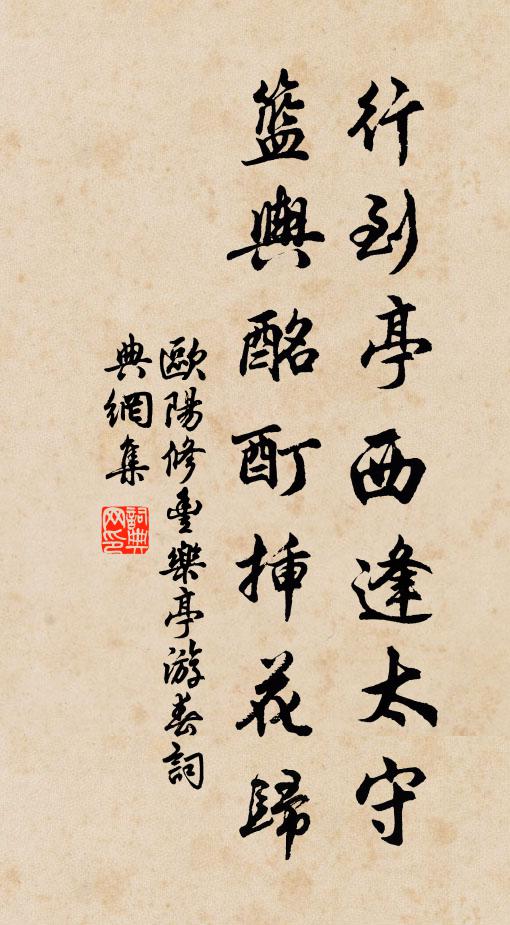 行到亭西逢太守
籃輿酩酊插花歸
歐陽修豐樂亭游春詞
典網集
詞典網印